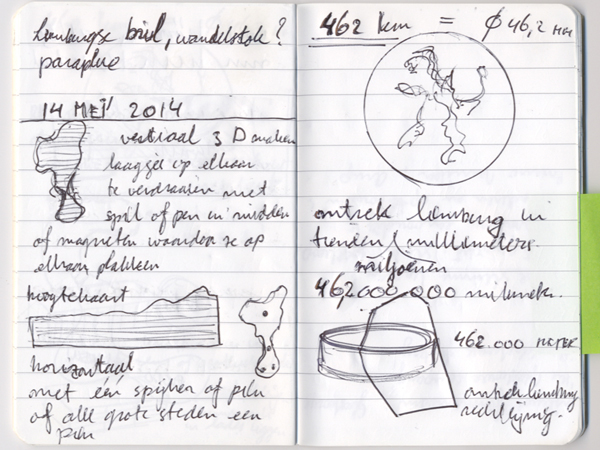 Limburgse bril, wandelstok?
paraplue
14 MEI 2014
verticaal 3D maken
laagjes op elkaar
te verdraaien met
spil of pen in midden
of magneten waardoor ze op
elkaar plakken
hoogtekaart
horizontaal
met één spijker of pen
of alle grote steden een
pen
462 km = ∅ 46,2 mm
omtrek Limburg in
tienden millimeters.
miljoenen
462.000.000 milimeter.
462.000 METER
omtrek Limburg